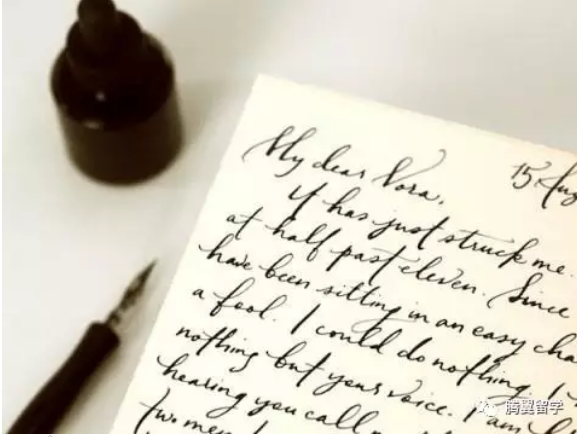 15 Aug
My dear Nora,
It has just struck me.
at half past eleven. Since
have been sitting in an easy cha
a fool. I could do nothing. I
nothing but your voice. I am li
hearing you call
two men
腾翼留学